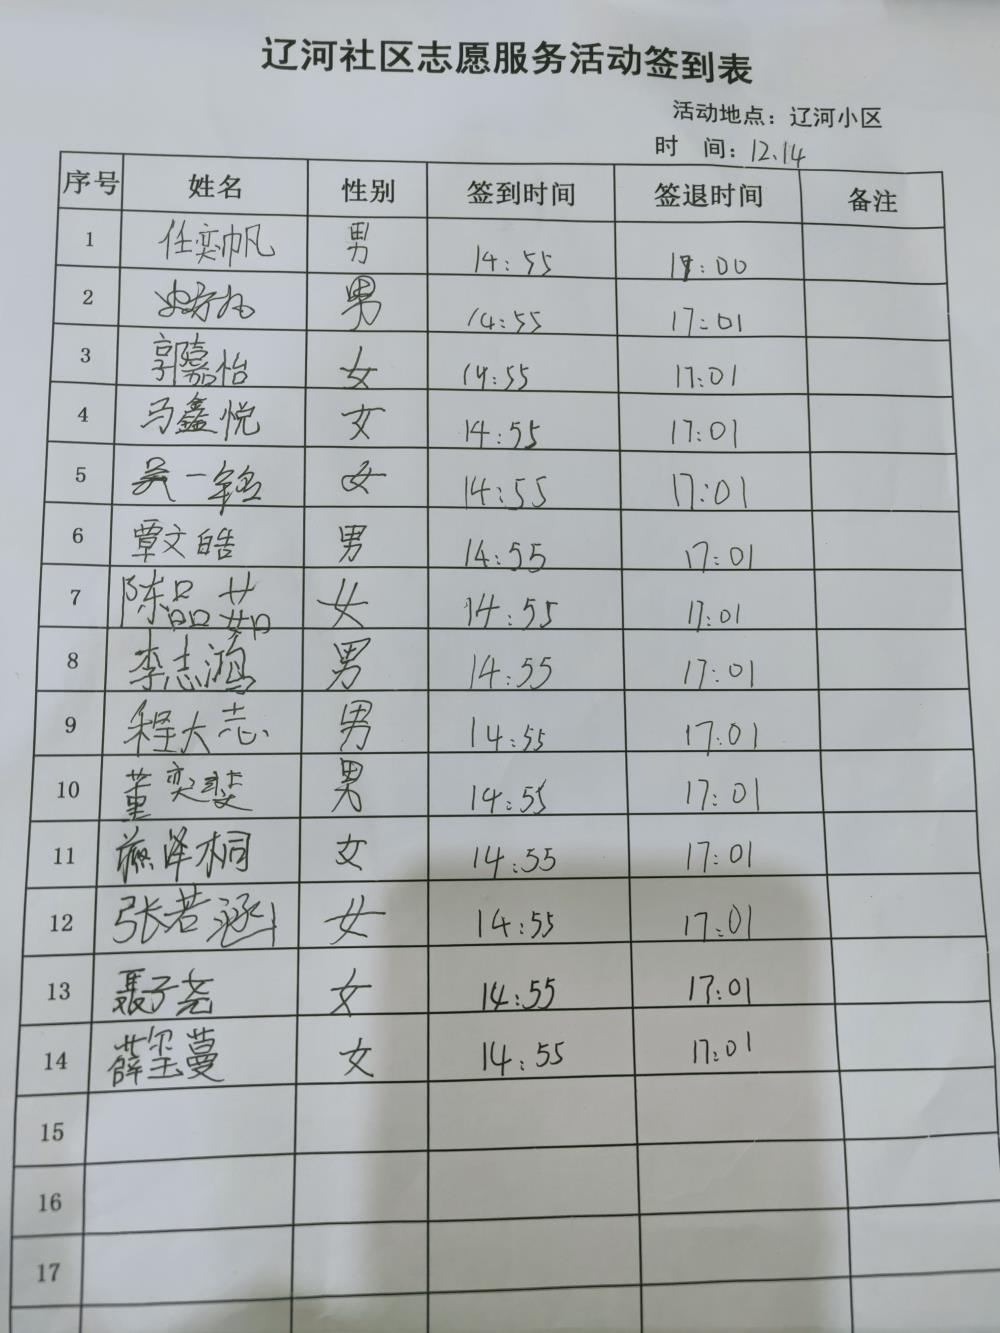 辽河社区志愿服务活动签到表
活动地点：辽河小区
时 间：12.14
序号 姓名 性别 签到时间 签退时间 备注
1 任奕帆 男 14:55 17:00
2 男 14:55 17:01
3 郭嘉怡 女 14:55 17:01
4 马鑫悦 女 14:55 17:01
5 吴一 女 14:55 17:01
6 覃文皓 男 14:55 17:01
7 陈品茹 女 14:55 17:01
8 李志鸿 男 14:55 17:01
9 程大志 男 14:55 17:01
10 董奕斐 男 14:55 17:01
11 泽桐 女 14:55 17:01
12 张若涵 女 14:55 17:01
13 聂子尧 女 14:55 17:01
14 薛玺蔓 女 14:55 17:01
15
16
17